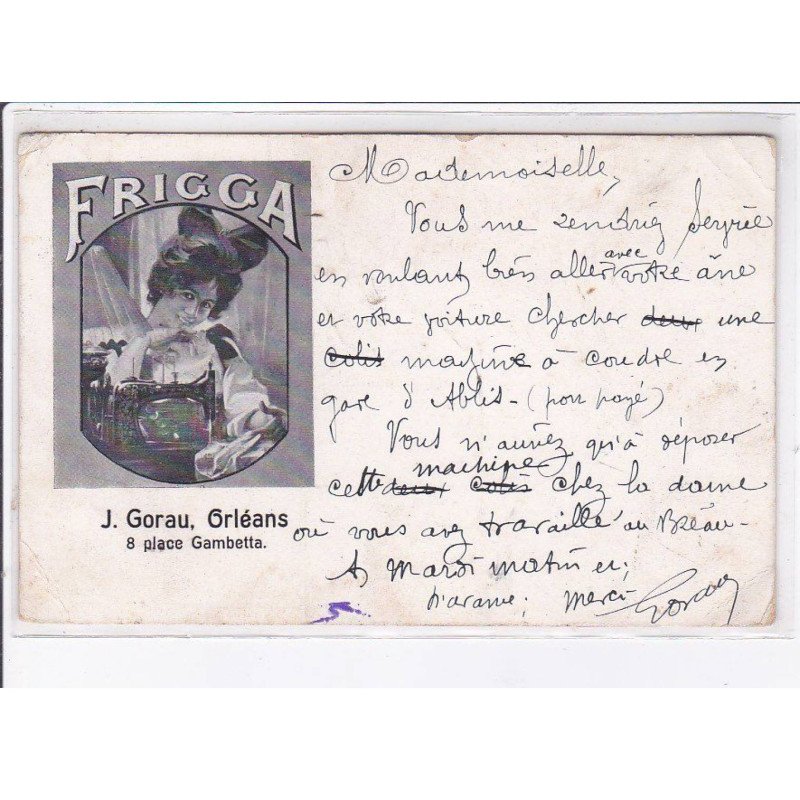 FRIGGA
J. Gorau, Orléans
8 place Gambetta.
Mademoiselle,
Vous me rendriez Servie
en voulant bien aller avec votre âne
et votre voiture chercher deux une
Colis machine à coudre en
gare d'Ablis - (port payé)
Vous n'aurez qu'à déposer
cette deux colis machine chez la dame
où vous avez travaillé au Bréau -
A mardi matin et,
d'avance, merci Gorau